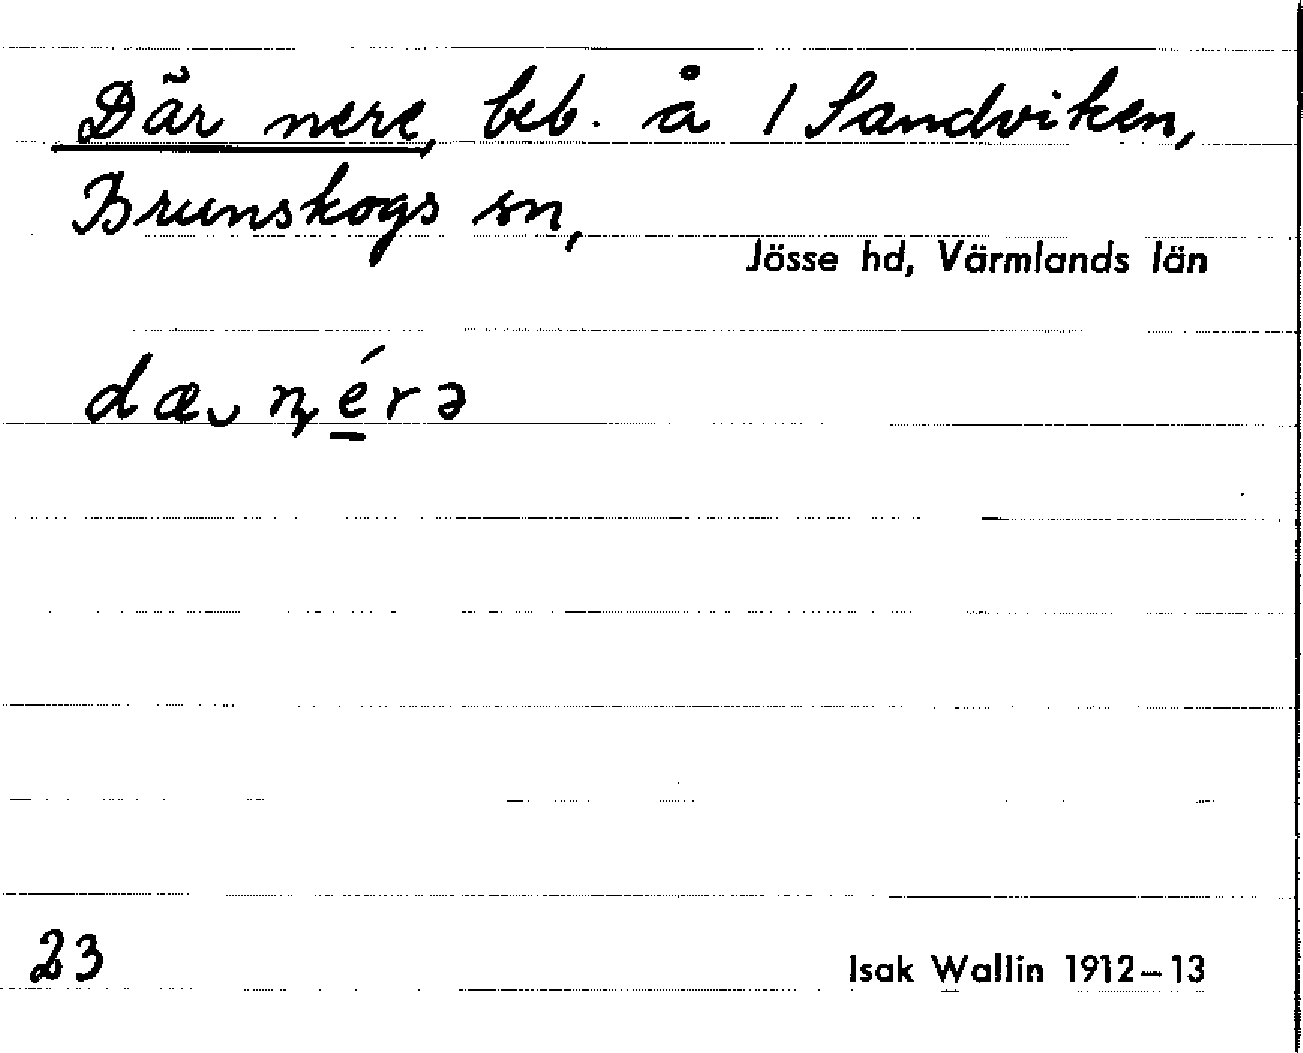 Där nere, beb. å 1 Sandviken,
Brunskogs sn,
Jösse hd, Värmlands län
dæ ̮ɳ é̱rə
23
Isak Wallin 1912–13